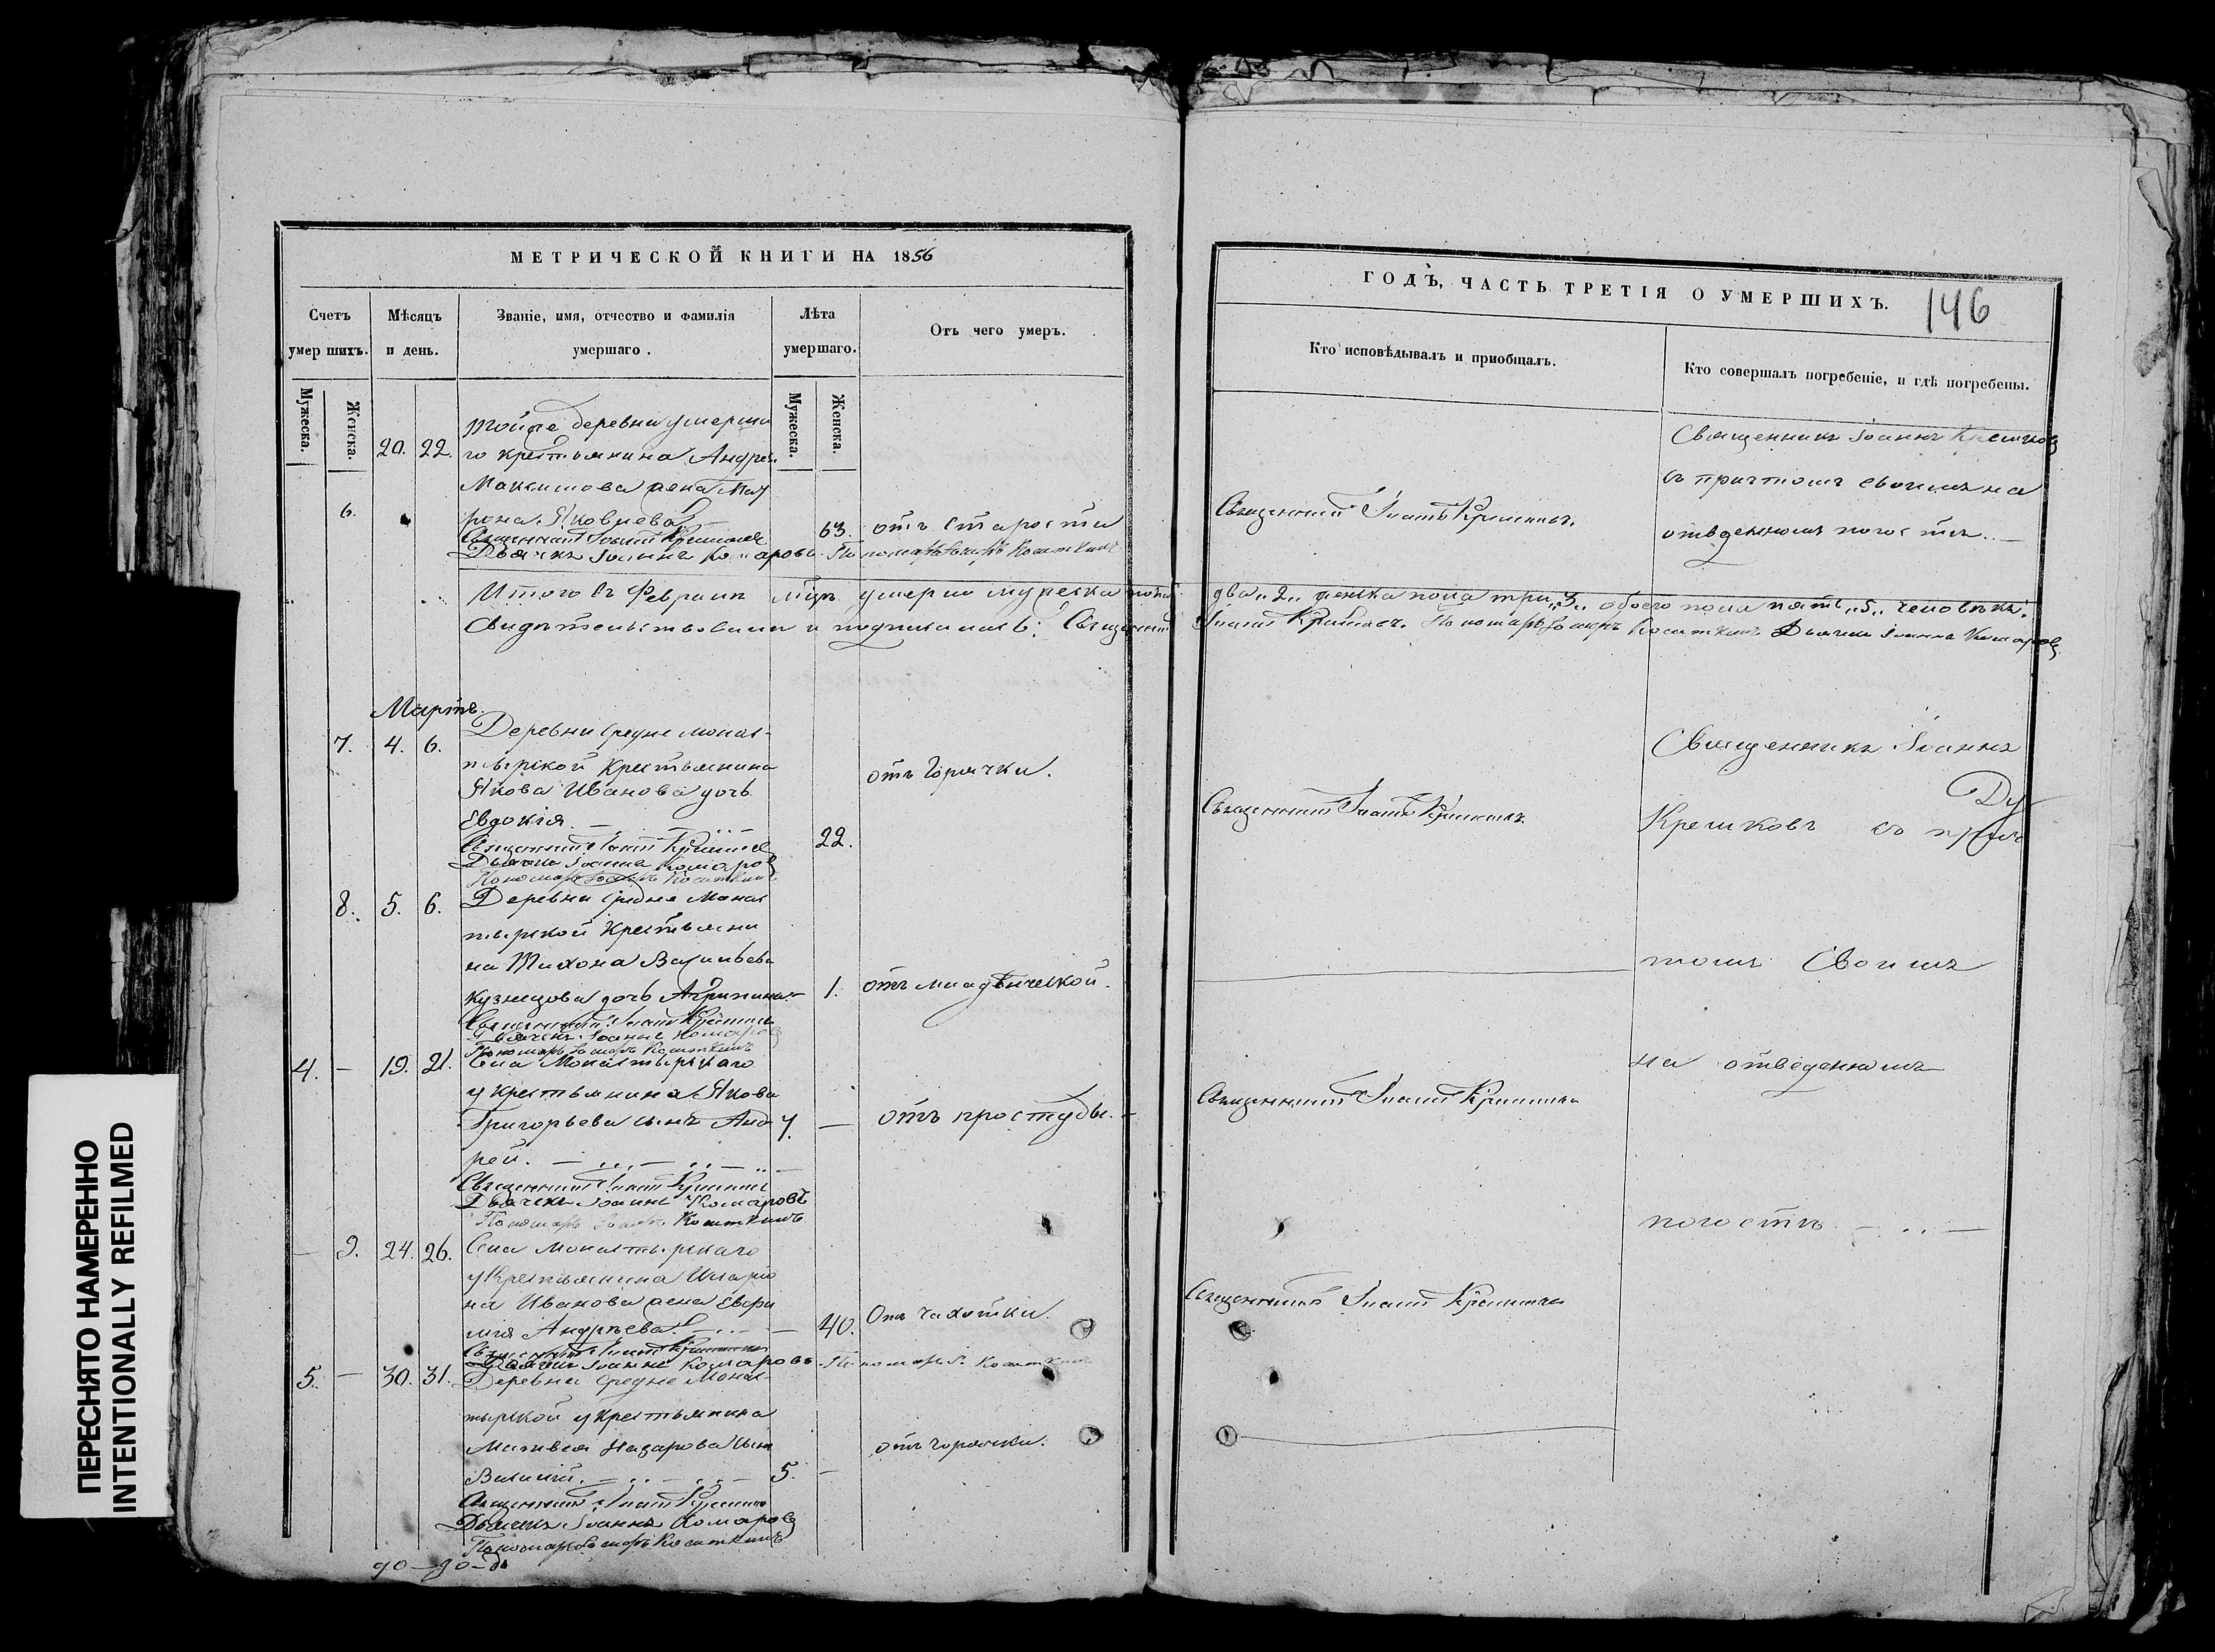 МЕТРИЧЕСКОЙ КНИГИ НА 1856
Счетъ умершихъ.
Мѣсяцъ и день.
Званіе, имя, отчество и фамилія умершаго.
Лѣта умершаго.
Отъ чего умеръ.
Мужеска.
Женска.
Мужеска.
Женска.
20. 22.
Тойже деревни умерша
го крестьянина Андрея
Максимова жена Мав
6.
рона Яковлева
63. отъ старости
Священникъ Іоаннъ Крешковъ
Дьячекъ Іоаннъ Комаровъ Пономарь
Итого въ Февралѣ мцѣ умерло мужеска пола
Свидѣтельствовали и подписались: Священникъ
Мартъ.
7. 4. 6.
Деревни Средне Монас-
тырской Крестьянина
Якова Иванова дочь
Евдокія
22.
отъ Горячки.
Священникъ Іоаннъ Крешковъ
Дьячекъ Іоаннъ Комаровъ
Пономарь
8. 5. 6.
Деревни Средне Монас
тырской Крестьяни
на Тихона Васильева
Кузнецова дочь Агрипина
1. отъ младенческой.
Священникъ Іоаннъ Крешковъ
Дьячекъ Іоаннъ Комаровъ
Пономарь
4. — 19. 21.
Села Монастырскаго
у крестьянина Якова
Григорьева сынъ Анд
7. — отъ простуды.
рей.
Священникъ Іоаннъ Крешковъ
Дьячекъ Іоаннъ Комаровъ
Пономарь
— 9. 24. 26.
Села Монастырскаго
у Крестьянина Иларіо
на Иванова жена Евфи
мія Андреева.
40. Отъ чахотки.
Священникъ Іоаннъ Крешковъ
Дьячекъ Іоаннъ Комаровъ Пономарь
5. — 30. 31.
Деревни Средне Монас-
тырской у крестьянина
Матвея Назарова сынъ
Василій.
5. —
отъ горячки.
Священникъ Іоаннъ Крешковъ
Дьячекъ Іоаннъ Комаровъ
Пономарь
ГОДЪ, ЧАСТЬ ТРЕТІЯ О УМЕРШИХЪ.
146
Кто исповѣдывалъ и приобщалъ.
Кто совершалъ погребеніе, и гдѣ погребены.
Священникъ Іоаннъ Крешковъ
съ причтомъ своимъ на
отведенномъ погостѣ.
Священникъ Іоаннъ Крешковъ
два „2„ женска пола три „3„ обоего пола пять „5„ человѣкъ.
Іоаннъ Крешковъ. Пономарь Дьячекъ Іоаннъ Комаровъ
Священникъ Іоаннъ
Священникъ Іоаннъ Крешковъ
Крешковъ съ прич
томъ Своимъ
на отведенномъ
Священникъ Іоаннъ Крешковъ
погостѣ.
Священникъ Іоаннъ Крешковъ
ПЕРЕСНЯТО НАМЕРЕННО
INTENTIONALLY REFILMED